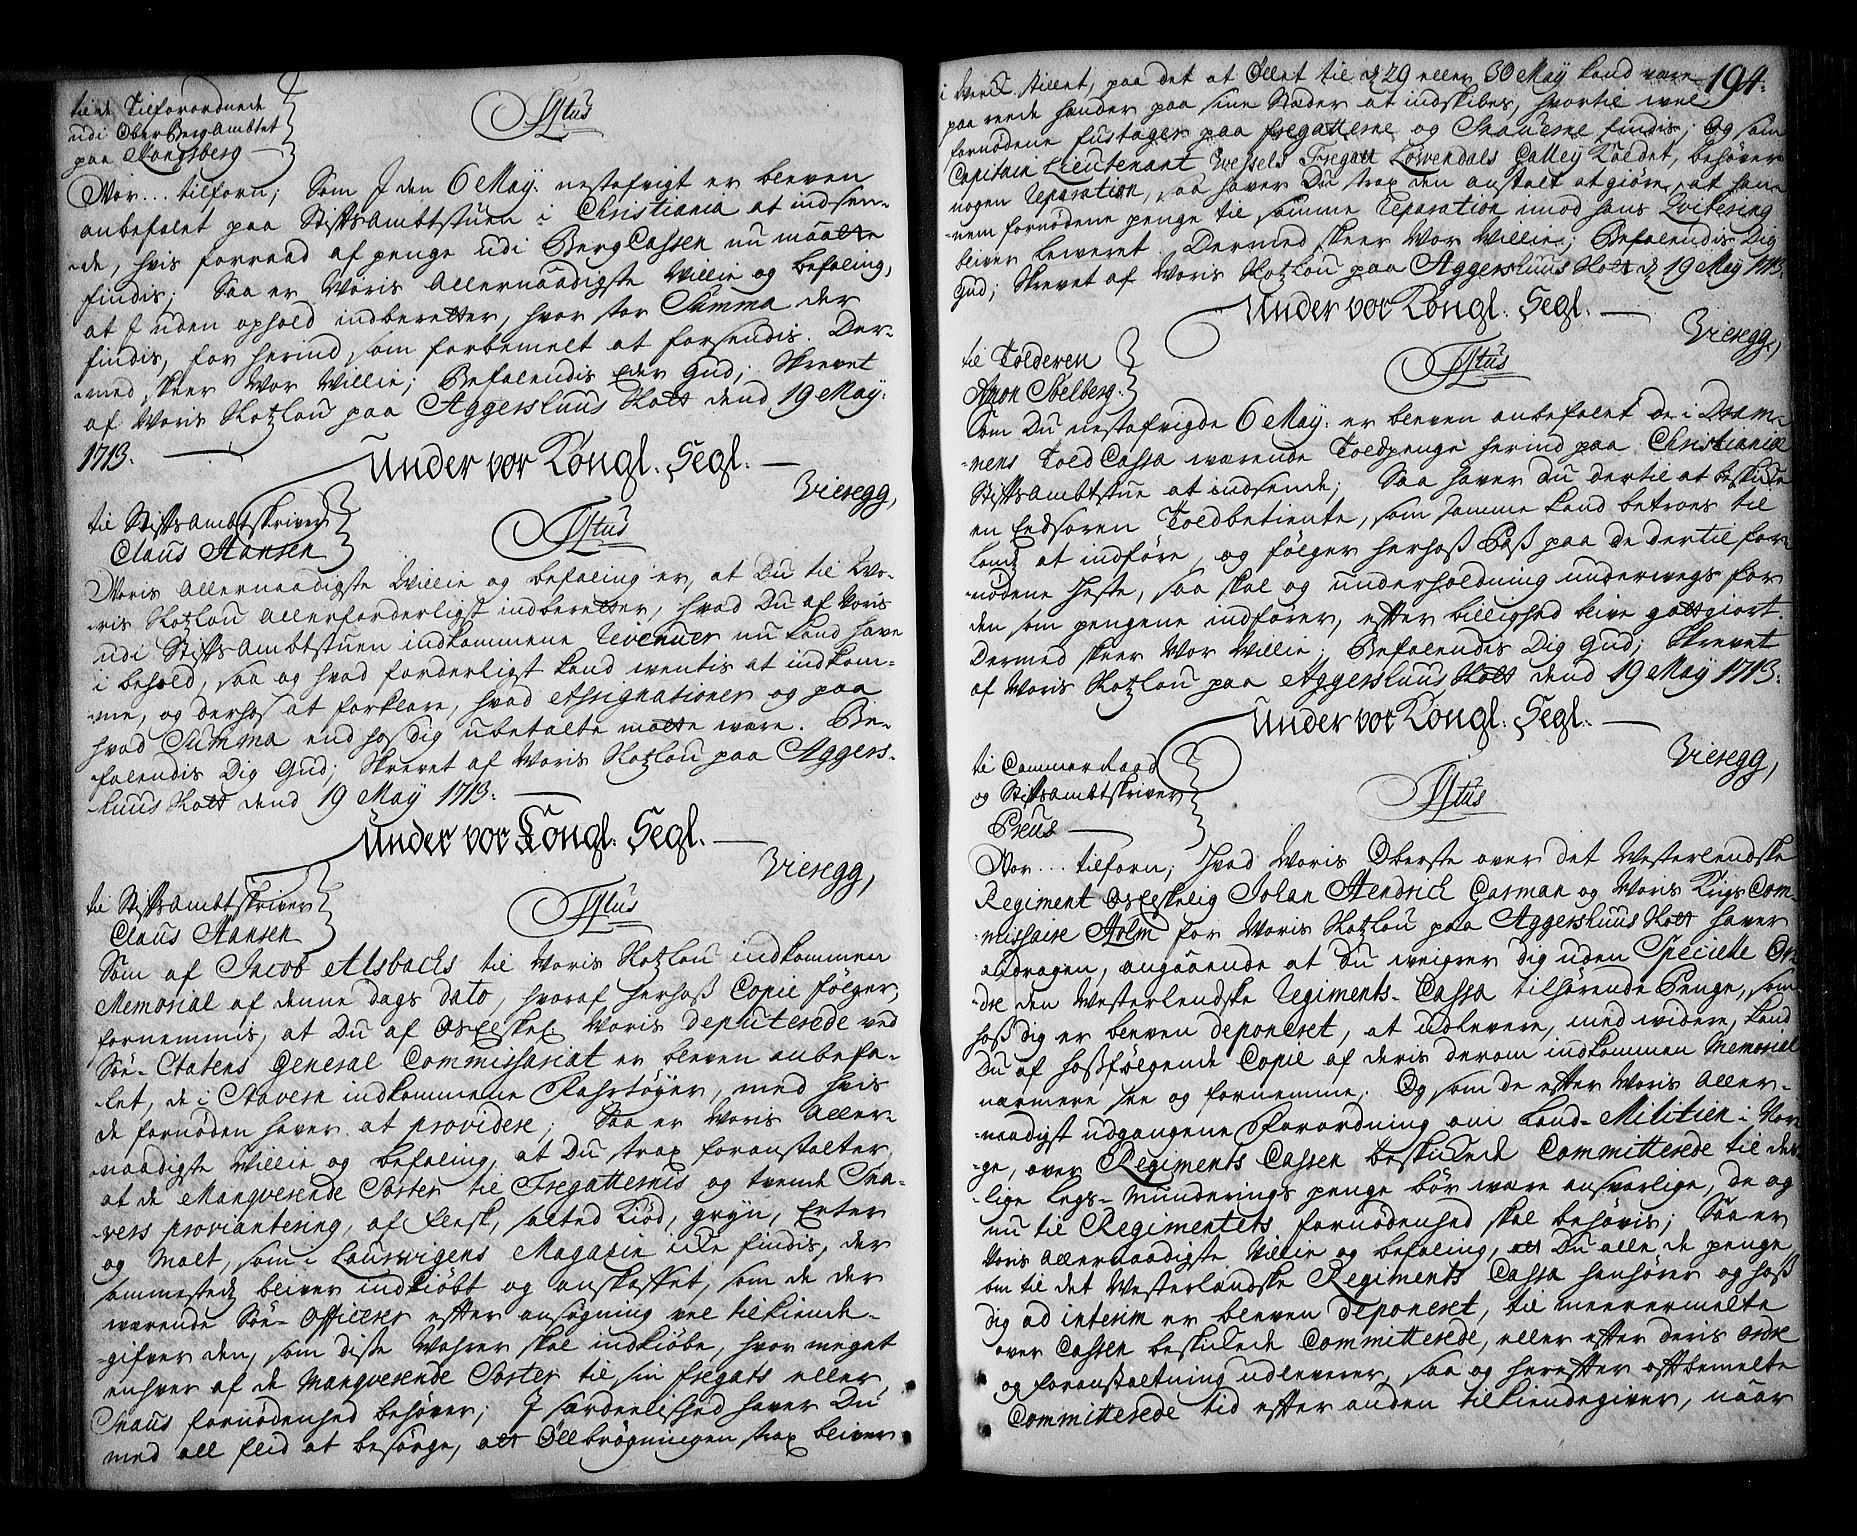 til de Tilforordnede
udi OberBergAmbtet
paa Kongsberg
Vor... tilforn; Som I den 6 May nestafvigt er bleven
anbefalet paa StiftsAmbtstuen i Christiania at indsen-
de, hvis forraad af penge udi BergCassen nu maatte
findis; Saa er Voris Allernaadigste Villie og befaling,
at I uden ophold indberetter, hvor stor Summa der
findis, for herind som forbemelt at forsendis. Der-
med skeer Vor Villie; Befalendis Eder Gud; Skrevet
af Voris Slotzlou paa Aggershuus Slott dend 19 May
1713.
Under vor Kongl. Segl.
Vieregg,
til StiftsAmbtskriver
Claus Hansen
Voris Allernaadigste Willie og befaling er, at Du til Wo-
ris Slotzlou Allerforderligst indberetter, hvad Du af Voris
udi StiftsAmbtstuen indkommene Revenuer nu kand have
i behold, saa og hvad forderligt kand wentis at indkom-
me, og derhos at forklare, hvad Assignationer og paa
hvad Summa end hos dig ubetalte motte ware. Be-
falendis Dig Gud; Skrevet af Voris Slotzlou paa Aggers-
huus Slott dend 19 May 1713.
Under vor Kongl. Segl.
Vieregg,
til StiftsAmbtskriver
Claus Hansen
Som af Jacob Alsbachs til Voris Slotzlou indkommen
Memorial af denne dags dato, hvoraf herhoß Copie følger,
fornemmis, at Du af Voris deputerede ved
Søe-Etatens General Commissariat er bleven anbefa-
let, de i Stavern indkommene Fahrtøyer, med hvis
de fornøden haver at providere; Saa er Voris Aller-
naadigste Villie og befaling, at Du strax foranstalter,
at de Manqverende Poster til Fregatternis og tvende Sna-
vers proviantering, af Flesk, salted Kiød, gryn, Erter
og Malt, som i Laurwigens Magazin icke findis, der
sammestedz bliver indkiøbt og anskaffet, som de der
værende Søe-Officerer efter ansøgning vel tilkiende-
gifver den, som diße Wahrer skal indkiøbe, hvor meget
enhver af de manqverende Poster til sin Fregats eller
Snaus fornødenhed behøver; I særdelished haver Du
med all flid at besørge, att Øllbrøgningen strax bliver
194.
i Værck stillet, paa det at Øllet til d 29 eller 30 May kand være
paa rede hænder paa sine Stæder at indskibes, hvortil well
fornødene fustager paa Fregatterne og Snauerne findis; Og som
Capitain Lieutenant Wessels Fregatt Løwendals Galley Kaldet, behøver
nogen Reparation, saa haver Du strax den anstalt at giøre, at han-
nem fornødene penge til samme Reparation imod hans Qvitering
bliver leveret. Dermed skeer Vor Villie; Befalendis Dig
Gud; Skrevet af Voris Slotzlou paa Aggershuus Slott d 19 May 1713.
Under vor Kongl. Segl.
Vieregg,
til Tolderen
Stelberg.
Som Du nestafvigde 6 May er bleven anbefalet de i Dram-
mens Told Cassa wærende Toldpenge herind paa Christianiæ
StiftsAmbtstue at indsende; Saa haver Du dertil at beskicke
en Eedsoren Toldbetiente, som samme kand betroes til
lands at indføre, og følger herhoß Paß paa de dertil for-
nødene Heste, saa skal og underholdning underwegs for
den som pengene indfører, efter billighed blive gottgiort.
Dermed skeer Vor Villie; Befalendis Dig Gud; Skrevet
af Voris Slotzlou paa Aggershuus Slott dend 19 May 1713.
Under vor Kongl. Segl.
Vieregg,
til Cammerraad
og StiftsAmbtskriver
Preus
Vor... tilforn; Hvad Voris Oberste over det Westerlendske
Regiment Johan Hendrich Garman og Voris KrigsCom-
missaire Holm for Voris Slotzlou paa Aggershuus Slott haver
andragen, angaaende at Du weigrer dig uden Specielle Or-
dre den Westerlendske Regiments-Cassa tilhørende Penge, som
hoß dig er bleven deponeret, at udlevere, med widere, kand
Du af hoßfølgende Copie af deris derom indkommen Memorial
nærmere see og fornemme. Og som de efter Voris Aller-
naadigst udgangene Forordning om Land-Militien i Nor-
ge, over Regiments Cassen beskickede Committerede til de
lige Legs-Munderings penge bør være answarlige, de og
nu til Regimentets fornødenhed skal behøvis; Saa er
Voris Allernaadigste Villie og befaling, att Du alle de penge
som til det Westerlandske Regiments Cassa henhører og hoß
dig ad interim er bleven deponeret, til meerermelte
over Cassen beskickede Committerede, eller efter deris ordre
og foranstaltning udleverer, saa og herefter oftbemelte
Committerede tid efter anden tilkiendegiver, naar